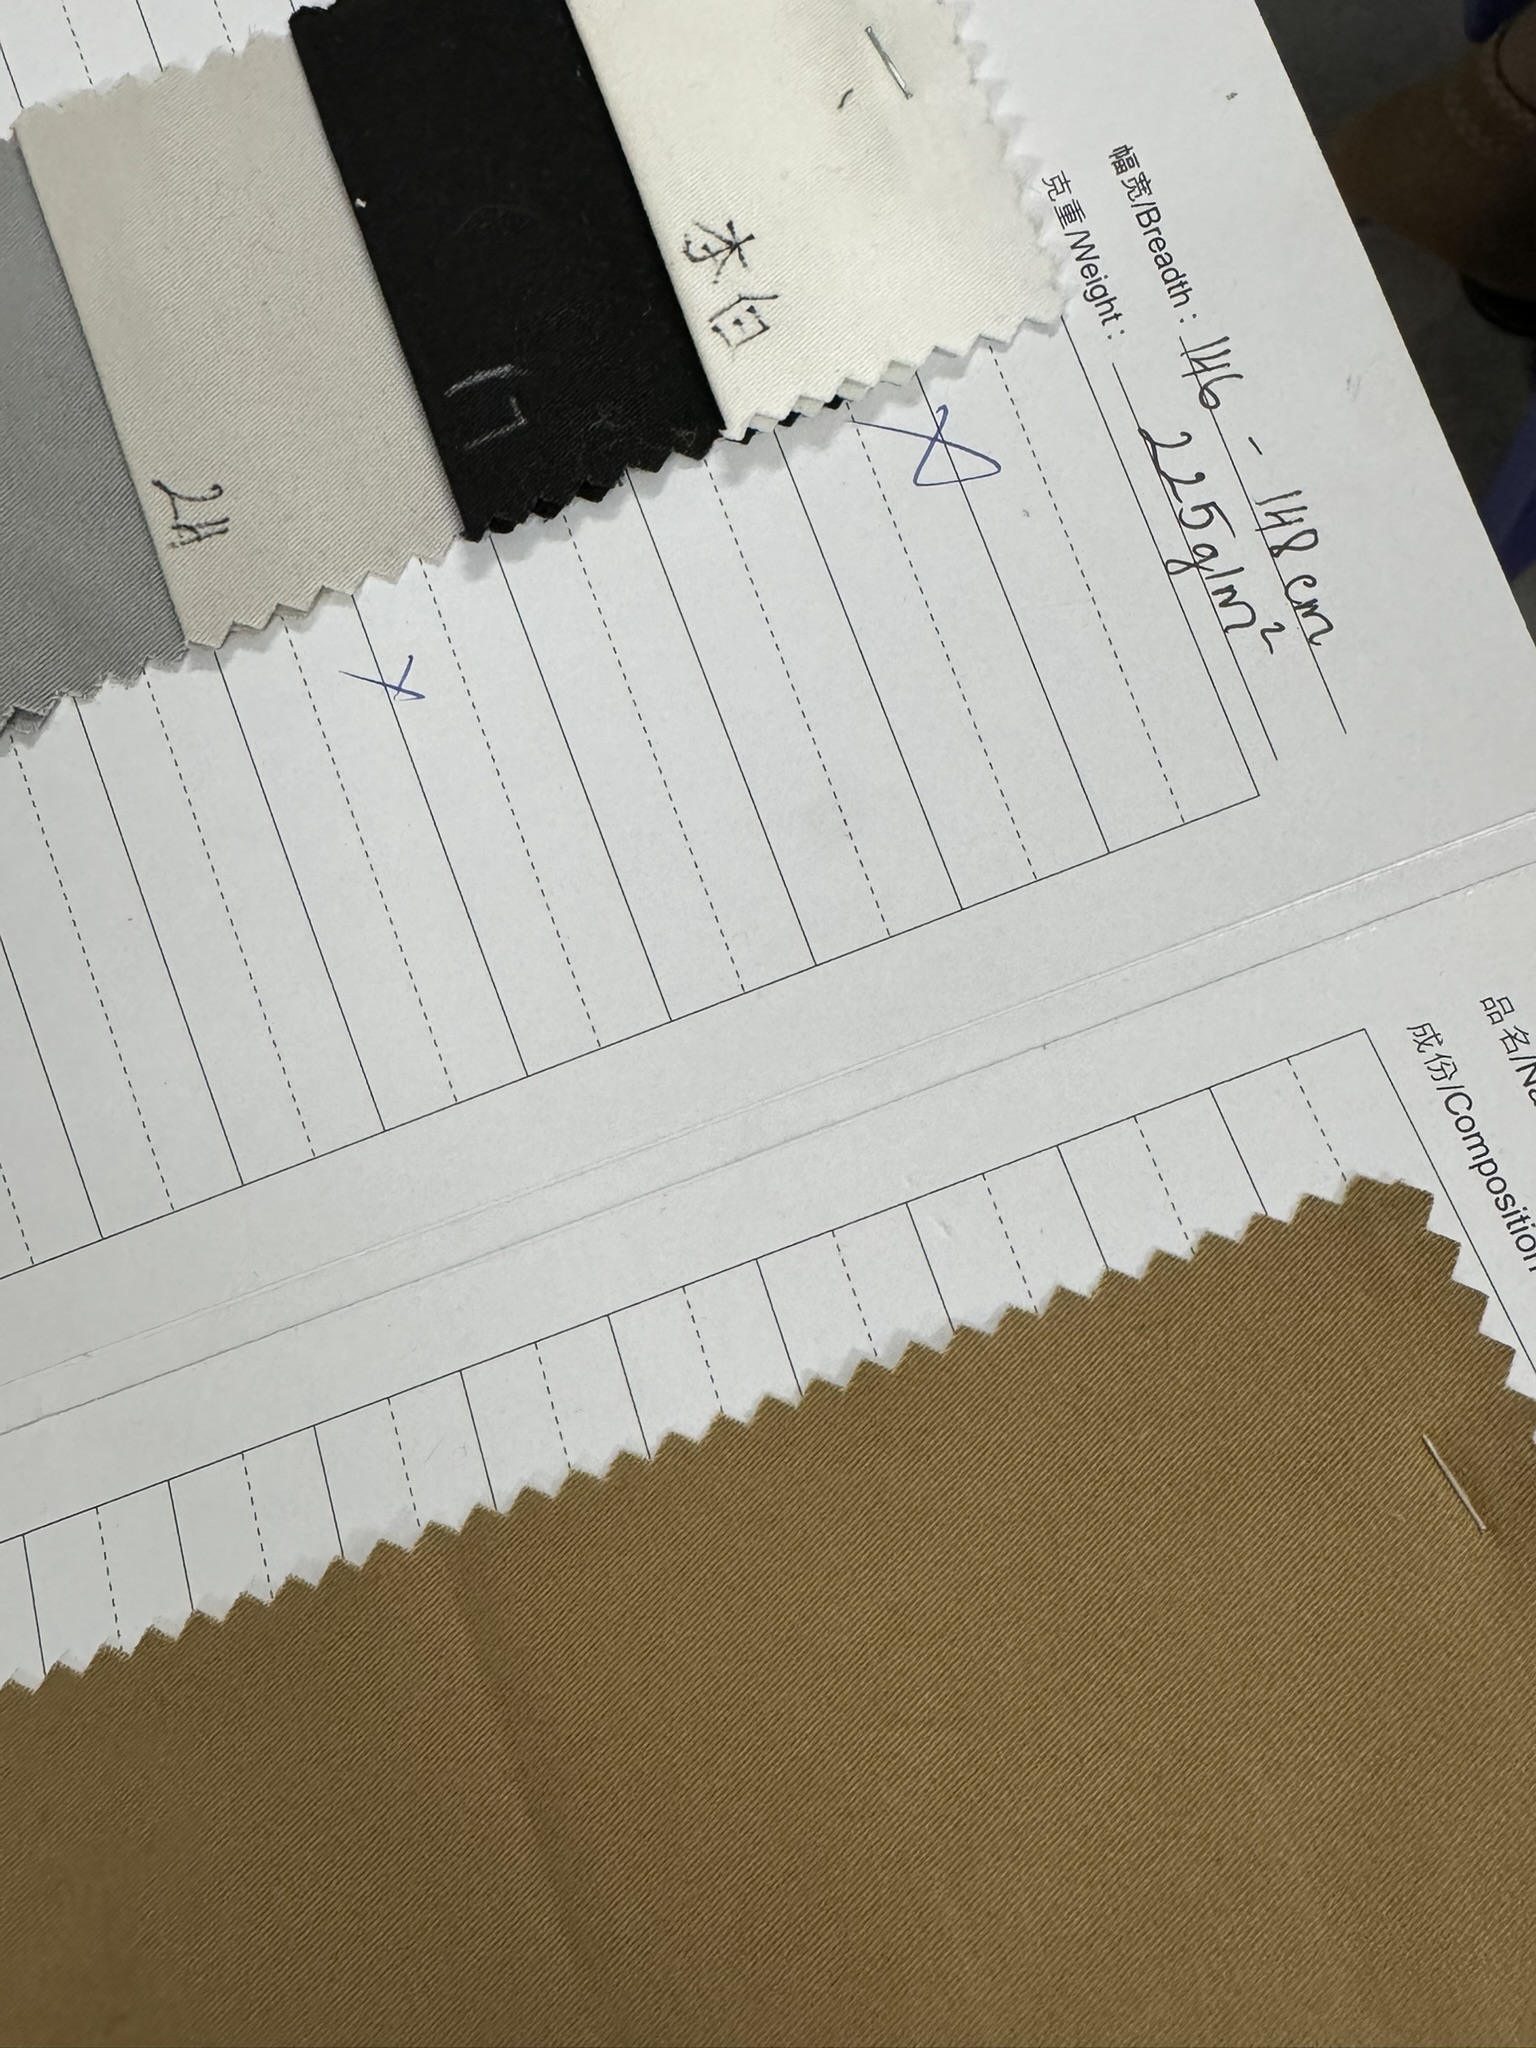 幅宽/Breadth: 146 - 148cm
克重/Weight: 225g/m²
本白
2#
品名/Na
成份/Composition